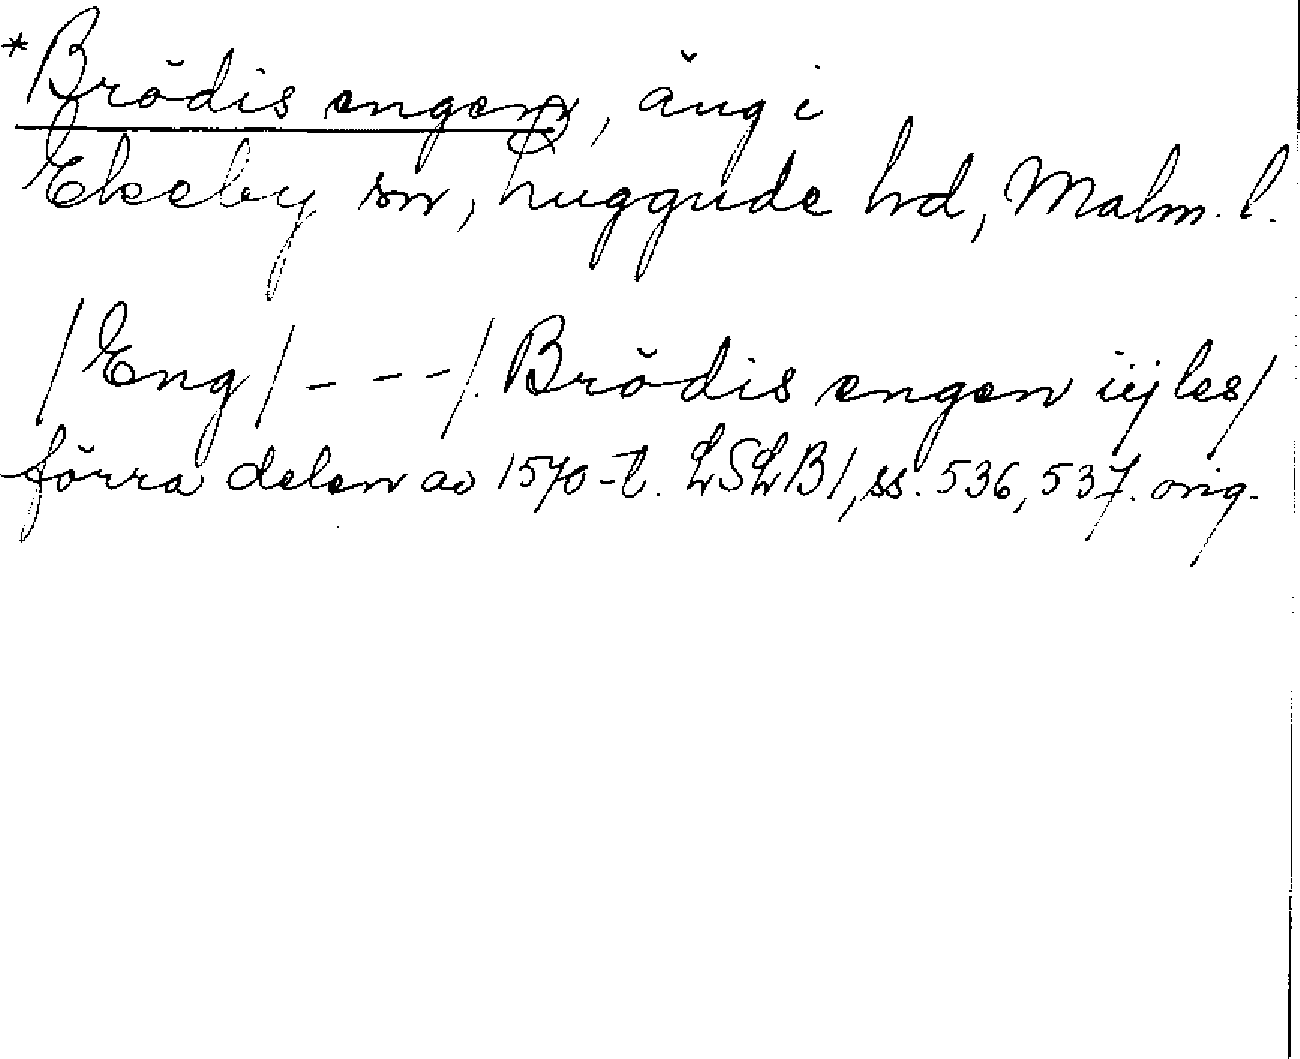 *Brödis engen, äng i
Ekeby sn, Luggude hd, Malm. l.
/Eng/ - - - /. Brödis engen iij les/
förra delen av 1570-t. LSLB1, ss. 536, 537. orig.